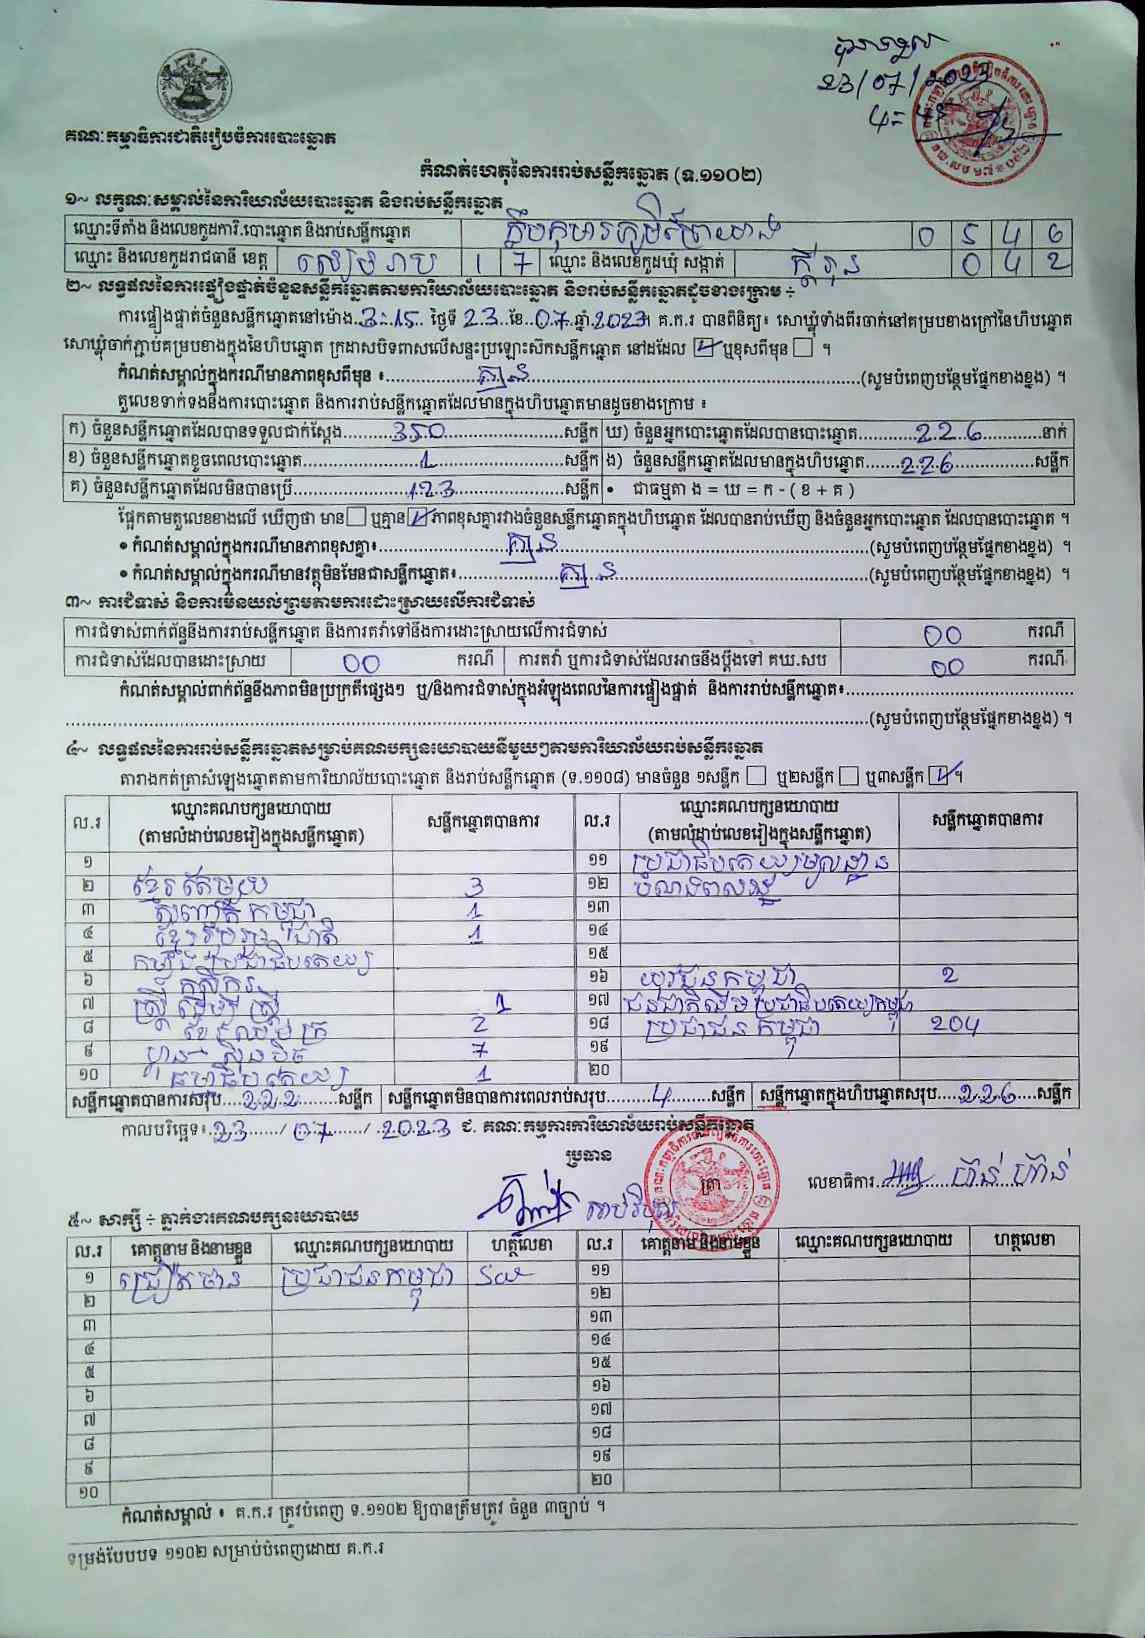 បានទទួល
23/07/2023
គណៈកម្មាធិការជាតិរៀបចំការបោះឆ្នោត
កំណត់ហេតុនៃការរាប់សន្លឹកឆ្នោត (ទ.១១០២)
១~ លក្ខណៈសម្គាល់នៃការិយាល័យបោះឆ្នោត និងរាប់សន្លឹកឆ្នោត
ឈ្មោះទីតាំង និងលេខកូដការិ.បោះឆ្នោត និងរាប់សន្លឹកឆ្នោត 0 5 4 6
ឈ្មោះ និងលេខកូដរាជធានី ខេត្ត សៀមរាប 1 7 ឈ្មោះ និងលេខកូដឃុំ សង្កាត់ 0 4 2
២~ លទ្ធផលនៃការផ្ទៀងផ្ទាត់ចំនួនសន្លឹកឆ្នោតតាមការិយាល័យបោះឆ្នោត និងរាប់សន្លឹកឆ្នោតដូចខាងក្រោម ÷
ការផ្ទៀងផ្ទាត់ចំនួនសន្លឹកឆ្នោតនៅម៉ោង 3:15 ថ្ងៃទី 23 ខែ 07 ឆ្នាំ 2023។ គ.ក.រ បានពិនិត្យ៖ សោឃ្លុំទាំងពីរចាក់នៅគម្របខាងក្រៅនៃហិបឆ្នោត
សោឃ្លុំចាក់ភ្ជាប់គម្របខាងក្នុងនៃហិបឆ្នោត ក្រដាសបិទពាសលើសន្ទះប្រឡោះស៊កសន្លឹកឆ្នោត នៅដដែល ឬខុសពីមុន ។
កំណត់សម្គាល់ក្នុងករណីមានភាពខុសពីមុន ៖ គ្មាន (សូមបំពេញបន្ថែមផ្នែកខាងខ្នង) ។
តួលេខទាក់ទងនឹងការបោះឆ្នោត និងការរាប់សន្លឹកឆ្នោតដែលមានក្នុងហិបឆ្នោតមានដូចខាងក្រោម ៖
ក) ចំនួនសន្លឹកឆ្នោតដែលបានទទួលជាក់ស្តែង 350 សន្លឹក ឃ) ចំនួនអ្នកបោះឆ្នោតដែលបានបោះឆ្នោត 226 នាក់
ខ) ចំនួនសន្លឹកឆ្នោតខូចពេលបោះឆ្នោត 1 សន្លឹក ង) ចំនួនសន្លឹកឆ្នោតដែលមានក្នុងហិបឆ្នោត 226 សន្លឹក
គ) ចំនួនសន្លឹកឆ្នោតដែលមិនបានប្រើ 123 សន្លឹក • ជាធម្មតា ង = ឃ = ក - ( ខ + គ )
ផ្អែកតាមតួលេខខាងលើ ឃើញថា មាន ឬគ្មាន ភាពខុសគ្នារវាងចំនួនសន្លឹកឆ្នោតក្នុងហិបឆ្នោត ដែលបានរាប់ឃើញ និងចំនួនអ្នកបោះឆ្នោត ដែលបានបោះឆ្នោត ។
• កំណត់សម្គាល់ក្នុងករណីមានភាពខុសគ្នា៖ គ្មាន (សូមបំពេញបន្ថែមផ្នែកខាងខ្នង) ។
• កំណត់សម្គាល់ក្នុងករណីមានវត្ថុមិនមែនជាសន្លឹកឆ្នោត៖ គ្មាន (សូមបំពេញបន្ថែមផ្នែកខាងខ្នង) ។
៣~ ការជំទាស់ និងការមិនយល់ព្រមតាមការដោះស្រាយលើការជំទាស់
ការជំទាស់ពាក់ព័ន្ធនឹងការរាប់សន្លឹកឆ្នោត និងការតវ៉ាទៅនឹងការដោះស្រាយលើការជំទាស់ 00 ករណី
ការជំទាស់ដែលបានដោះស្រាយ 00 ករណី ការតវ៉ា ឬការជំទាស់ដែលអាចនឹងប្តឹងទៅ គឃ.សប 00 ករណី
កំណត់សម្គាល់ពាក់ព័ន្ធនឹងភាពមិនប្រក្រតីផ្សេងៗ ឬ/និងការជំទាស់ក្នុងអំឡុងពេលនៃការផ្ទៀងផ្ទាត់ និងការរាប់សន្លឹកឆ្នោត៖
(សូមបំពេញបន្ថែមផ្នែកខាងខ្នង) ។
៤~ លទ្ធផលនៃការរាប់សន្លឹកឆ្នោតសម្រាប់គណបក្សនយោបាយនីមួយៗតាមការិយាល័យរាប់សន្លឹកឆ្នោត
តារាងកត់ត្រាសំឡេងឆ្នោតតាមការិយាល័យបោះឆ្នោត និងរាប់សន្លឹកឆ្នោត (ទ.១១០៨) មានចំនួន ១សន្លឹក ឬ២សន្លឹក ឬ៣សន្លឹក ។
ល.រ ឈ្មោះគណបក្សនយោបាយ (តាមលំដាប់លេខរៀងក្នុងសន្លឹកឆ្នោត) សន្លឹកឆ្នោតបានការ ល.រ ឈ្មោះគណបក្សនយោបាយ (តាមលំដាប់លេខរៀងក្នុងសន្លឹកឆ្នោត) សន្លឹកឆ្នោតបានការ
១ ១១ ប្រជាធិបតេយ្យមូលដ្ឋាន
២ ខ្មែរតែមួយ 3 ១២
៣ សញ្ជាតិកម្ពុជា 1 ១៣
៤ ខ្មែររួបរួមជាតិ 1 ១៤
៥ ១៥
៦ កសិករ ១៦ យុវជនកម្ពុជា 2
៧ ស្ត្រីដើម្បីស្ត្រី 1 ១៧ ជនជាតិដើមប្រជាធិបតេយ្យកម្ពុជា
៨ 2 ១៨ ប្រជាជនកម្ពុជា 204
៩ ហ៊្វុនស៊ិនប៉ិច 7 ១៩
១០ ធម្មាធិបតេយ្យ 1 ២០
សន្លឹកឆ្នោតបានការសរុប 222 សន្លឹក សន្លឹកឆ្នោតមិនបានការពេលរាប់សរុប 4 សន្លឹក សន្លឹកឆ្នោតក្នុងហិបឆ្នោតសរុប 226 សន្លឹក
កាលបរិច្ឆេទ៖ 23 / 07 / 2023 ជ. គណៈកម្មការការិយាល័យរាប់សន្លឹកឆ្នោត
ប្រធាន
ត្រា លេខាធិការ
៥~ សាក្សី ÷ ភ្នាក់ងារគណបក្សនយោបាយ
ល.រ គោត្តនាម និងនាមខ្លួន ឈ្មោះគណបក្សនយោបាយ ហត្ថលេខា ល.រ គោត្តនាម និងនាមខ្លួន ឈ្មោះគណបក្សនយោបាយ ហត្ថលេខា
១ ប្រជាជនកម្ពុជា ១១
២ ១២
៣ ១៣
៤ ១៤
៥ ១៥
៦ ១៦
៧ ១៧
៨ ១៨
៩ ១៩
១០ ២០
កំណត់សម្គាល់ ៖ គ.ក.រ ត្រូវបំពេញ ទ.១១០២ ឱ្យបានត្រឹមត្រូវ ចំនួន ៣ច្បាប់ ។
ទម្រង់បែបបទ ១១០២ សម្រាប់បំពេញដោយ គ.ក.រ